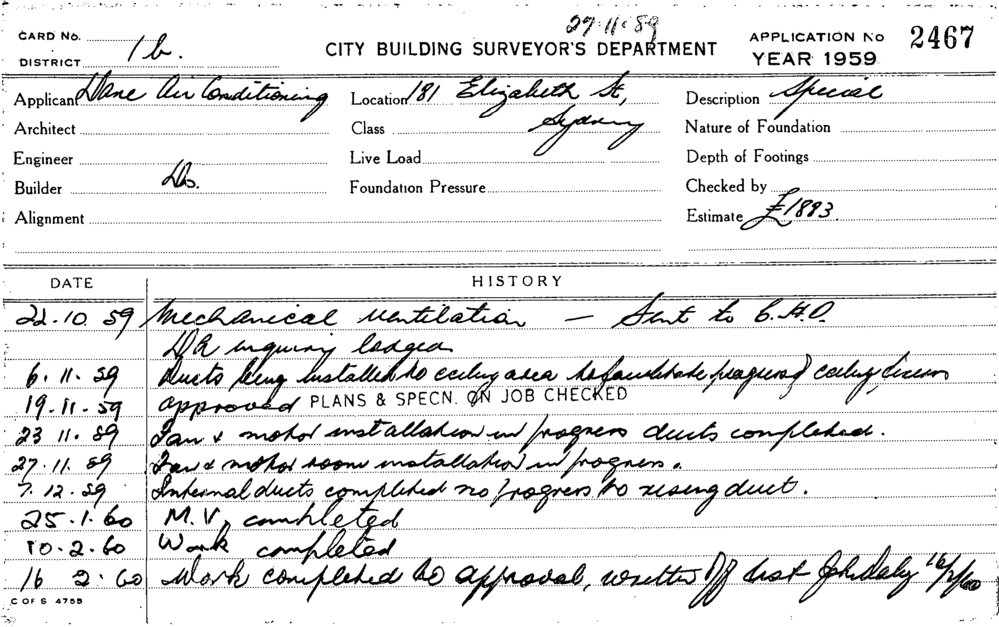 27.11.59
CARD No. 1b.
DISTRICT
CITY BUILDING SURVEYOR'S DEPARTMENT
APPLICATION No 2467
YEAR 1959
Applicant Dane Air Conditioning
Location 181 Elizabeth St,
Sydney
Description Special
Architect
Class
Nature of Foundation
Engineer
Live Load
Depth of Footings
Builder Do.
Foundation Pressure
Checked by
Alignment
Estimate £1893
DATE HISTORY
22.10.59 Mechanical ventilation — Sent to C.H.O.
DR inquiry lodged
6.11.59 Ducts being installed to ceiling area to facilitate progress of ceiling
19.11.59 approved PLANS & SPECN. ON JOB CHECKED
23 11.59 Fan & motor installation in progress ducts completed.
27.11.59 Fan & motor room installation in progress.
7.12.59 Internal ducts completed no progress to rising duct.
25.1.60 M.V. completed
10.2.60 Work completed
16 2.60 Work completed to approval, written off list 16/2/60
C OF S 4755